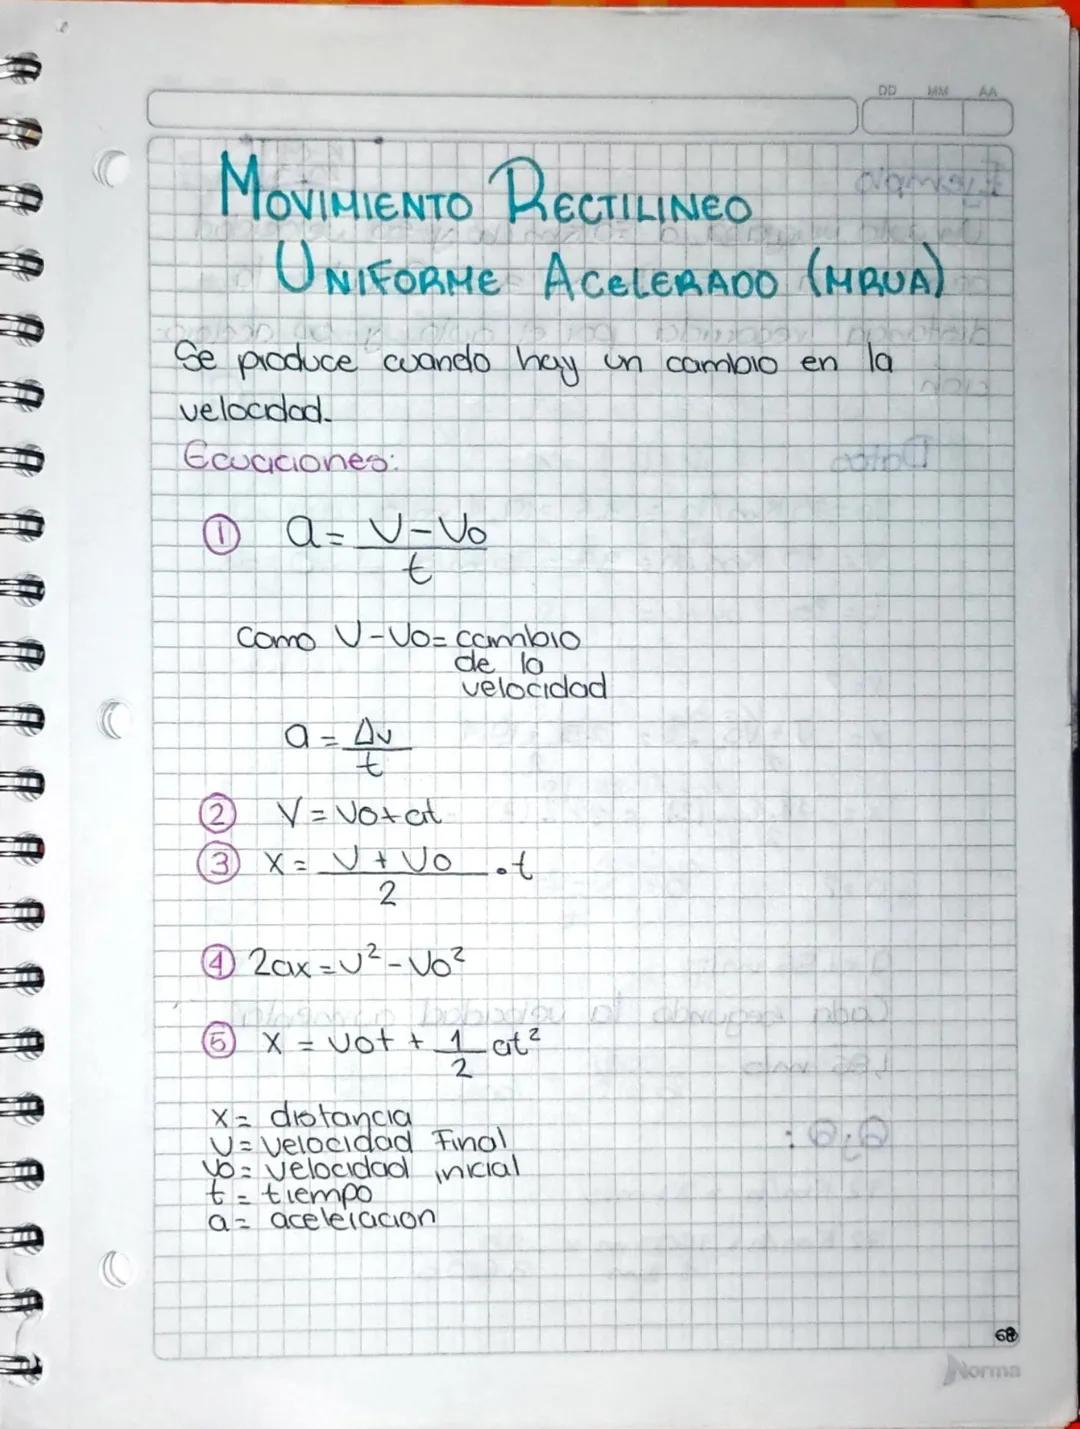 DD MM AA
MOVIMIENTO RECTILINEO
UNIFORME ACELERADO (MRUA)
Se produce cuando hay un cambio en la
velocidad.
Ecuaciones:
① a = V - Vo
t
Como V - Vo = cambio
de la
velocidad
a = Δv
t
② V = Vo + at
③ X = V + Vo . t
2
④ 2ax = V² - Vo²
⑤ X = Vot + 1 at²
2
X = distancia
V = Velocidad Final
Vo = Velocidad inicial
t = tiempo
a = aceleracion
68
Norma